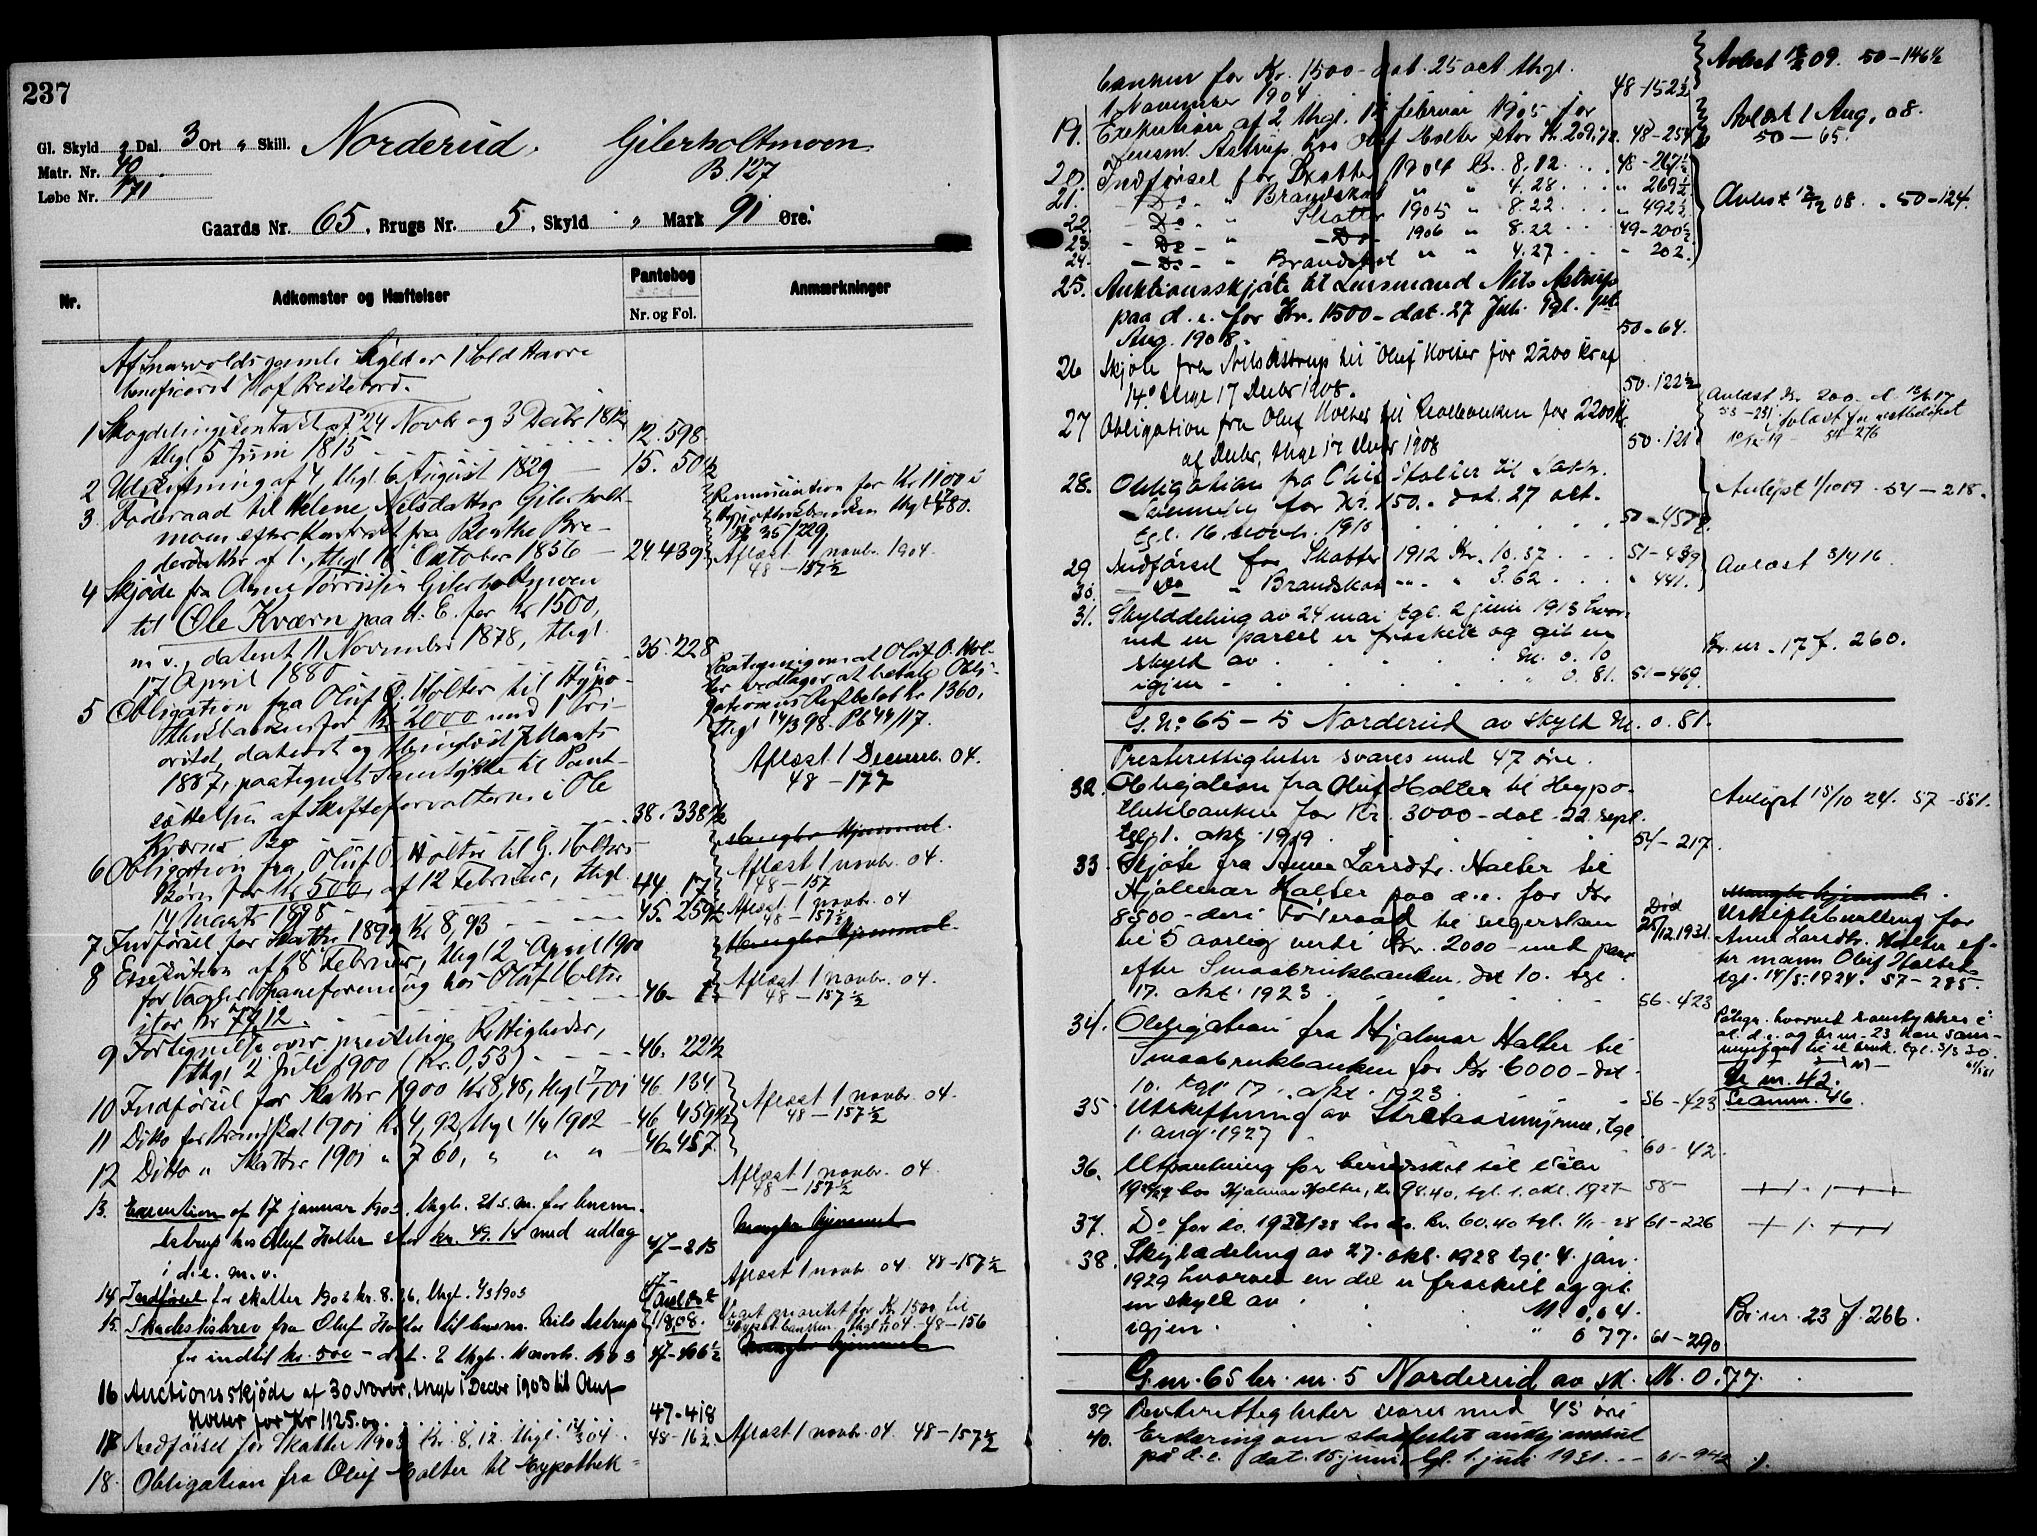 237
Gl. Skyld " Dal. 3 Ort " Skill.
Norderud. Gilerholtmoen
B. 127
Matr. Nr. 40
Løbe Nr. 171
Gaards Nr. 65, Brugs Nr. 5, Skyld " Mark 91 Øre.
Nr. Adkomster og Hæftelser Pantebog Anmærkninger
Nr. og Fol.
gamle Skyld er 1 Hold Havre
beneficeret
1 Skogdelingskontrakt af 24 Novbr og 3 Decbr 1812
thgl 5 Juni 1815 12. 598
2 Udskiftning af 4, thgl. 6 August 1829 15. 50½
3 Føderaad til Helene Nelsdatter Gilerholt-
moen efter Kontrakt fra Benthe Pe-
dersdatter af 1, thgl 16 October 1856 24. 439
Renunciation for Kr 1100 i
Hypothekbanken thgl 80.
35/229
Aflæst 1 novbr. 1904.
48 – 157½
4 Skjøde fra Arne Tørrisen Gilerholtmoen
til Ole Kværn paa d. E. for Kr 1500,
m. v., dateret 11 November 1878, thgl.
17 April 1880 35. 228
5 Obligation fra Oluf O. Holter til Hypo-
thekbanken for Kr 2000 med 1 Pri-
oritet, dateret og thinglæst 7 Marts
1887, paategnet Samtykke til Pant-
sættelsen af Skifteforvalteren i Ole
Kværns Bo 38. 338½
Paategning om at Oluf O. Hol-
ter vedtager at betale Obli-
gationens Restbeløb Kr. 1360,
thgl 14/3 98. Pb 44/17.
Aflæst 1 Decembr. 04.
48 – 177
6 Obligation fra Oluf O. Holter til G. Holters
Børn for Kr 500, af 12 Februar, thgl.
14 Marts 1898 44. 17
Mangler Hjemmel.
Aflæst 1 novbr. 04.
48 – 157
7 Indførsel for Skatter 1899 Kr 8,93 45. 259½
Aflæst 1 novbr. 04
48 – 157½
8 Execution af 18 Februar, thgl 2 April 1900
for Vagler Spareforening hos Oluf Holter
stor Kr 74,12 46.
Mangler Hjemmel.
Aflæst 1 novbr. 04.
48 – 157½
9 Fortegnelse over prestelige Rettigheder,
thgl 2 Juli 1900 (Kr. 0,53) 46. 22½
10 Indførsel for Skatter 1900 Kr 8,48, thgl 01 46 134
11 Ditto for Brandskat 1901 Kr 4,92, thgl 1/4 1902 46 459½
12 Ditto " Skatter 1901 " 7 60, " " " 46. 457.
Aflæst 1 novbr. 04.
48 – 157½
Aflæst 1 novbr. 04.
48 – 157½
13. Execution af 17 januar 1903, thgl. 21 s. m. for lensm.
Astrup hos Oluf Holter stor kr. 49. 14 med udlæg
i d. e. m. v. 47 – 213
Mangler hjemmel
Aflæst 1 novbr. 04 48 – 157½
14 Indførsel for skatter 1902 kr. 8. 26, thgl. 1903
15. Skadesløsbrev fra Oluf Holter til lensm. Nils Astrup
for indtil kr. 500 – dat. 2 thgl. 1903 47 – 406½
Veget prioritet for Kr. 1500 til
Hypotekbanken, thgl 04. – 48 – 156
Mangler hjemmel
16 Auctionsskjøde af 30 Novbr, thgl 1 Decbr 1903 til Oluf
Holter for Kr 1125.00 47 – 418
17 Indførsel for Skatter 1903 Kr. 8. 12. thgl. 04. 48 – 16½
Aflæst 1 novbr. 04 48 – 157½
18. Obligation fra Oluf Holter til Hypothek-
banken for Kr. 1500 – dat. 25 oct. thgl.
1 November 1904 48 – 152½
Avlæst 09. 50 – 146½
19. Exekution af 2 thgl. 1 februar 1905 for
Lensm. Astrup hos Oluf Holter stor Kr. 209.72. 48 – 254
Avlæst 1 Aug. 08.
50 – 65.
20. Indførsel for Skatter 1904 Kr. 8.12 48 – 267½
21. – Do – " Brandskat " " 4.28 " 269½
22 – Do – " Skatter 1905 " 8.22 " 492½
23 – Do – " – Do – 1906 " 8.22 49 – 200½
24. – Do – " Brandskat " " 4.27 " 202.
Avlæst 08. 50 – 124.
25. Auktionsskjøte til Lensmand Nils Astrup
paa d. e. for Kr. 1500 – dat. 27 Juli tgl. 1st
Aug. 1908 50 – 64.
26 Skjøte fra Nils Astrup til Oluf Holter for 2200 kr af
14. thgl 17 Decbr 1908. 50. 122½
27 Obligation fra Oluf Holter til Realbanken for 2200 kr
af Decbr, thgl 17 Decbr 1908 50. 121
Avlæst kr. 200.
avlæst for restbeløpet
10/12 – 19 – 54 – 276
28. Obligation fra Oluf Holter til
for Kr. 150. – dat. 27 oct.
tgl. 16 novbr. 1910 50 – 450½
Avlyst 1/10 19. 54 – 218.
29 Indførsel for Skatter 1912 Kr. 10. 37 51 – 439
30. – Do – " Brandskat " " 3.62 " 441.
Avlæst 3/4 16.
31. Skylddeling av 24 mai tgl. 2 juni 1913 hvor-
ved en parcel er fraskilt og git en
skyld av M. 0. 10
igjen – " 0.81. 51 – 469.
Br. nr. 17 f. 260.
G. No 65 – 5 Norderud av skyld M. 0.81.
Presterettigheter svares med 47 øre.
32. Obligation fra Oluf Holter til Hypo-
thekbanken for Kr. 3000 – dat. 22 sept.
tgl. 1. okt. 1919 54 – 217.
Avlyst 15/10 24. 57 – 551.
33. Skjøte fra Anna Larsdtr. Holter til
Hjalmar Holter paa d. e. for Kr
8500 – deri Føderaad til selgersken
til 5 aarlig verdi Kr. 2000 – med pant
efter Smaabrukbanken. dat 10. tgl
17. okt. 1923 56 – 423
Død
25/12. 1931.
Mangler hjemmel.
Uskiftebevilling for
Anna Larsdtr. Holter ef-
ter mann Oluf Holter
tgl. 14/5. 1924. 57 – 285.
34. Obligation fra Hjalmar Holter til
Smaabrukbanken for Kr. 6000 – dat.
10. tgl. 17. okt. 1923 56 – 423
Påtegn. hvorved samtykkes i
at d. e. og br. nr. 23 kan sam-
menføies til et bruk. tgl. 3/3 30.
Br. nr. 42.
Sammen. 46.
35. Utskiftning av Stretaasmyrene, tgl
1. aug. 1927 60 – 42.
36. Utpantning for skat til
1926/27 hos Hjalmar Holter, kr. 98.40, tgl. 1. okt. 1927 – 58 –
37. Do for do. 1927/28 hos do. kr. 60.40 tgl. 1/11 – 28 61 – 226
38. Skylddeling av 27. okt. 1928 tgl. 4. jan.
1929 hvorved en del er fraskilt og git
en skyld av M. 0,04.
igjen " 0 77. 61 – 290
Br. nr. 23 f. 266.
G. nr. 65 br. nr. 5 Norderud av sk. M. 0.77.
39 Presterettigheter svares med 45 øre
40. Erklæring om
på d. e. dat. 15 juni, tgl. 1. juli 1931. 61 – 94½